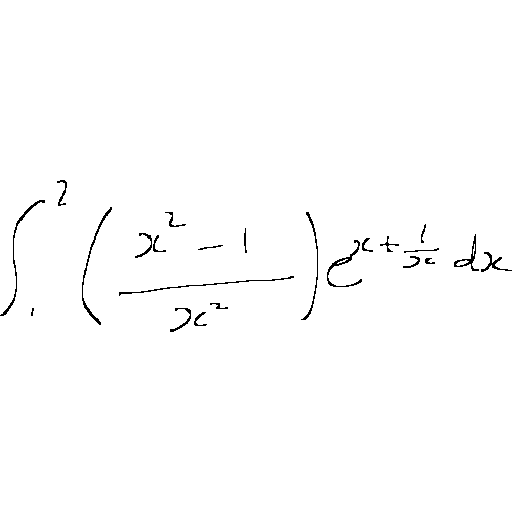 \int_{1}^{2} \left( \frac{x^2 - 1}{x^2} \right) e^{x + \frac{1}{x}} dx